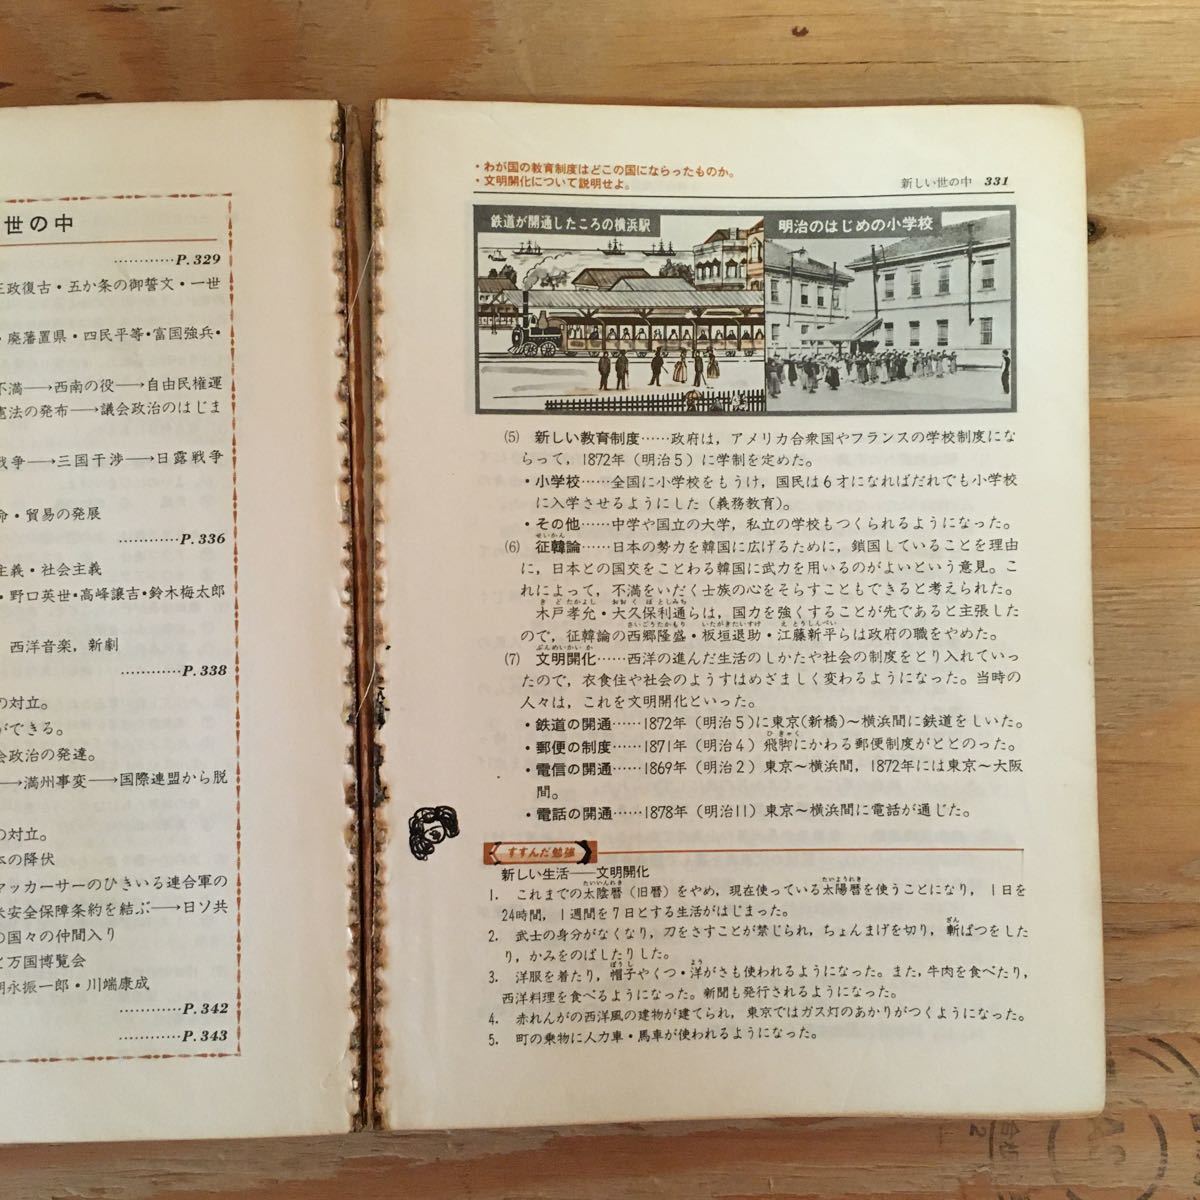 世の中
…………P.329
王政復古・五か条の御誓文・一世
・廃藩置県・四民平等・富国強兵・
不満→西南の役→自由民権運
憲法の発布→議会政治のはじま
戦争→三国干渉→日露戦争
命・貿易の発展
…………P.336
主義・社会主義
・野口英世・高峰譲吉・鈴木梅太郎
西洋音楽，新劇
…………P.338
の対立。
ができる。
会政治の発達。
→満州事変→国際連盟から脱
の対立。
本の降伏
マッカーサーのひきいる連合軍の
米安全保障条約を結ぶ→日ソ共
の国々の仲間入り
と万国博覧会
朝永振一郎・川端康成
…………P.342
…………P.343
・わが国の教育制度はどこの国にならったものか。
・文明開化について説明せよ。
新しい世の中 331
鉄道が開通したころの横浜駅
明治のはじめの小学校
(5) 新しい教育制度……政府は，アメリカ合衆国やフランスの学校制度にな
らって，1872年（明治5）に学制を定めた。
・小学校……全国に小学校をもうけ，国民は6才になればだれでも小学校
に入学させるようにした（義務教育）。
・その他……中学や国立の大学，私立の学校もつくられるようになった。
せいかん
(6) 征韓論……日本の勢力を韓国に広げるために，鎖国していることを理由
に，日本との国交をことわる韓国に武力を用いるのがよいという意見。こ
れによって，不満をいだく士族の心をそらすこともできると考えられた。
きどたかよし おおくぼとしみち
木戸孝允・大久保利通らは，国力を強くすることが先であると主張した
さいごうたかもり いたがきたいすけ えとうしんぺい
ので，征韓論の西郷隆盛・板垣退助・江藤新平らは政府の職をやめた。
ぶんめいかいか
(7) 文明開化……西洋の進んだ生活のしかたや社会の制度をとり入れていっ
たので，衣食住や社会のようすはめざましく変わるようになった。当時の
人々は，これを文明開化といった。
・鉄道の開通……1872年（明治5）に東京（新橋）〜横浜間に鉄道をしいた。
ひきゃく
・郵便の制度……1871年（明治4）飛脚にかわる郵便制度がととのった。
・電信の開通……1869年（明治2）東京〜横浜間，1872年には東京〜大阪
間。
・電話の開通……1878年（明治11）東京〜横浜間に電話が通じた。
すすんだ勉強
新しい生活——文明開化
たいいんれき たいようれき
1. これまでの太陰暦（旧暦）をやめ，現在使っている太陽暦を使うことになり，1日を
24時間，1週間を7日とする生活がはじまった。
ざん
2. 武士の身分がなくなり，刀をさすことが禁じられ，ちょんまげを切り，斬ぱつをした
り，かみをのばしたりした。
ぼうし よう
3. 洋服を着たり，帽子やくつ・洋がさも使われるようになった。また，牛肉を食べたり，
西洋料理を食べるようになった。新聞も発行されるようになった。
4. 赤れんがの西洋風の建物が建てられ，東京ではガス灯のあかりがつくようになった。
5. 町の乗物に人力車・馬車が使われるようになった。